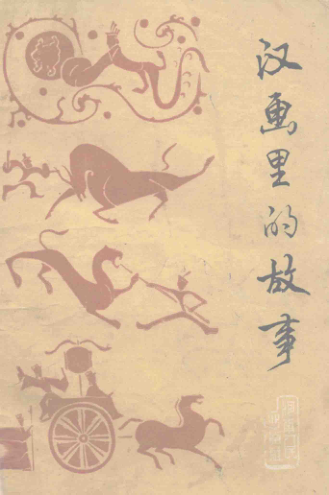 汉画里的故事